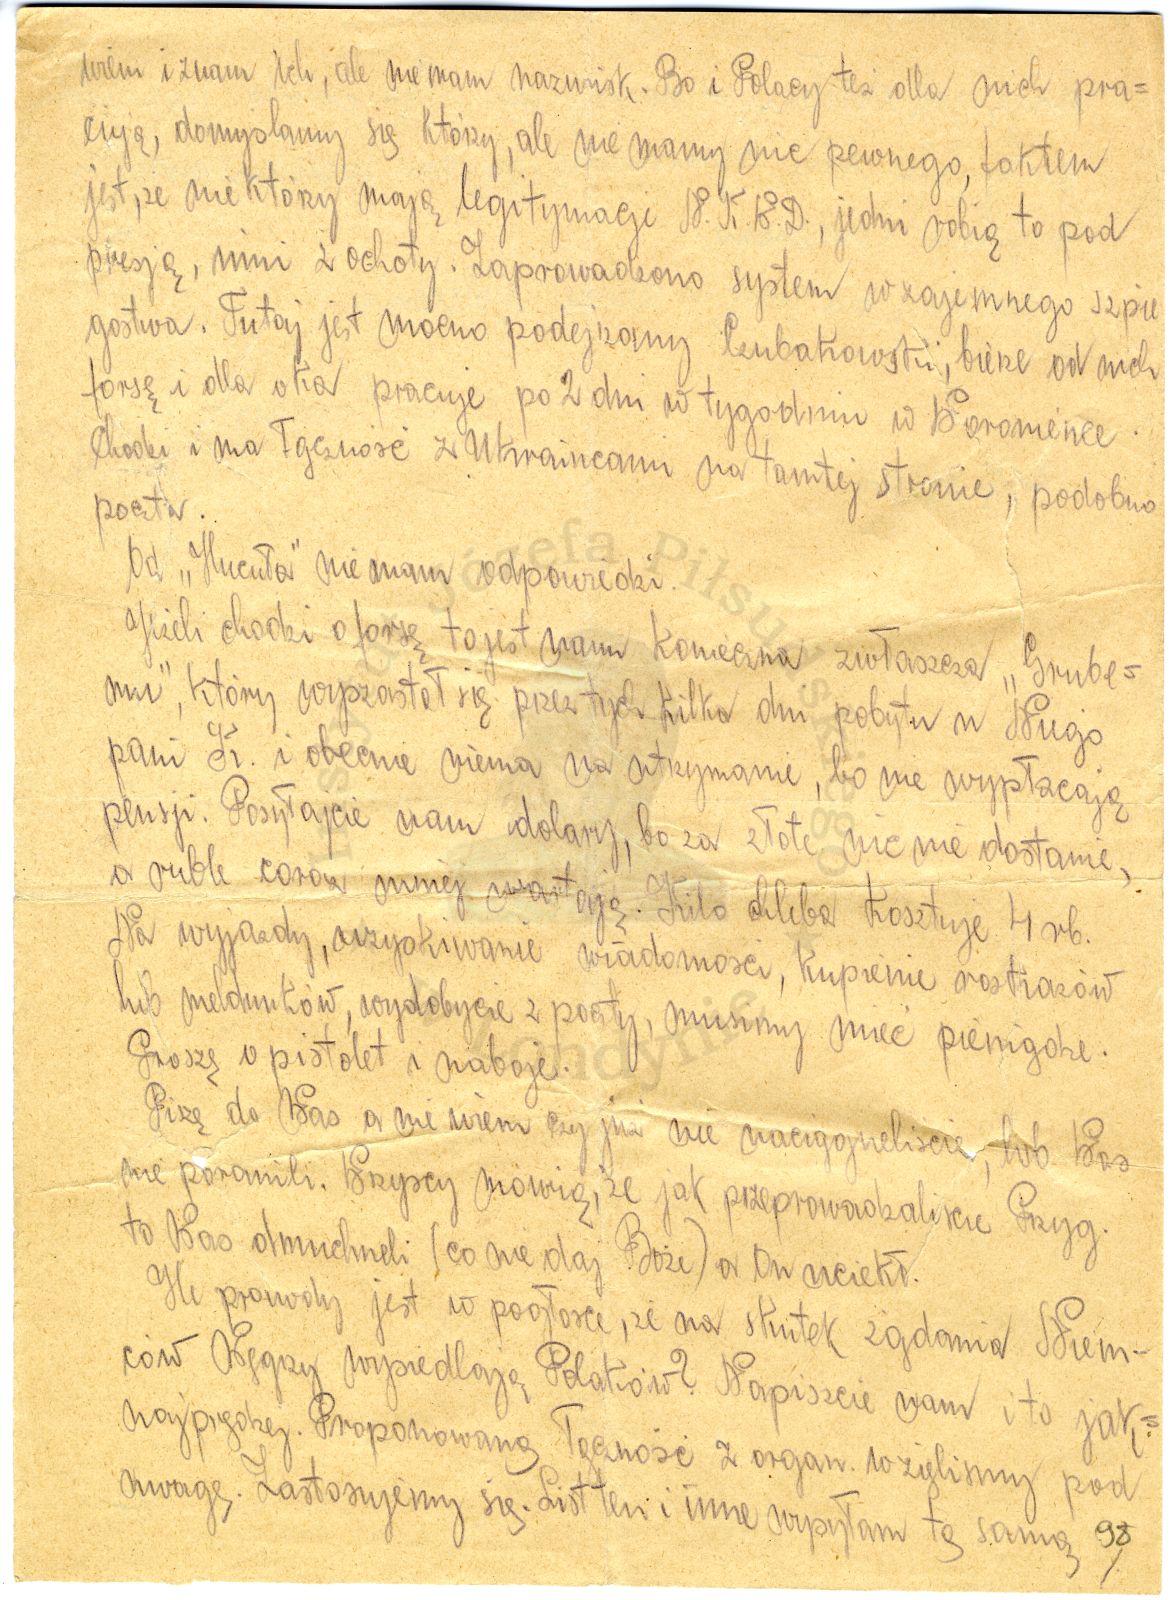 wiem i znam ich, ale nie mam nazwisk. Bo i Polacy też dla nich pra=
cują, domyślamy się który, ale nie mamy nic pewnego, faktem
jest, że niektórzy mają legitymacje N.K.W.D., jedni robią to pod
presją, inni z ochoty. Zaprowadzono system wzajemnego szpie
gostwa. Tutaj jest mocno podejrzany Czubakowski, bierze od nich
forsę i dla oka pracuje po 2 dni w tygodniu w Woronience.
Chodzi i ma łączność z Ukraińcami na tamtej stronie, podobno
poczta.
Od „Hucuła" nie mam odpowiedzi.
Jeżeli chodzi o forsę to jest nam konieczna zwłaszcza „Grube=
mu", który wyprzastał się przez tych kilka dni pobytu u Niego
pani Kr. i obecnie niema na utrzymanie, bo nie wypłacają
pensji. Posyłajcie nam dolary, bo za złote nic nie dostanie,
a ruble coraz mniej wartają. Kilo chleba kosztuje 4 rb.
Na wyjazdy, uzyskiwanie wiadomości, kupienie rozkazów
lub meldunków, wydobycie z poczty, musimy mieć pieniądze.
Proszę o pistolet i naboje.
Piszę do Was a nie wiem czy już nie naciągneliście, lub Was
nie poranili. Wszyscy mówią, że jak przeprowadzaliście Gryg.
to Was dmuchneli (co nie daj Boże) a On uciekł.
Ile prawdy jest w pogłosce, że na skutek żądania Niem-
ców Węgrzy wysiedlają Polaków? Napiszcie nam i to jak=
najprędzej. Proponowaną łączność z organ. wzięliśmy pod
uwagę. Zastosujemy się. List ten i inne wysyłam tą samą
98
Józefa Piłsudskiego
w Londynie